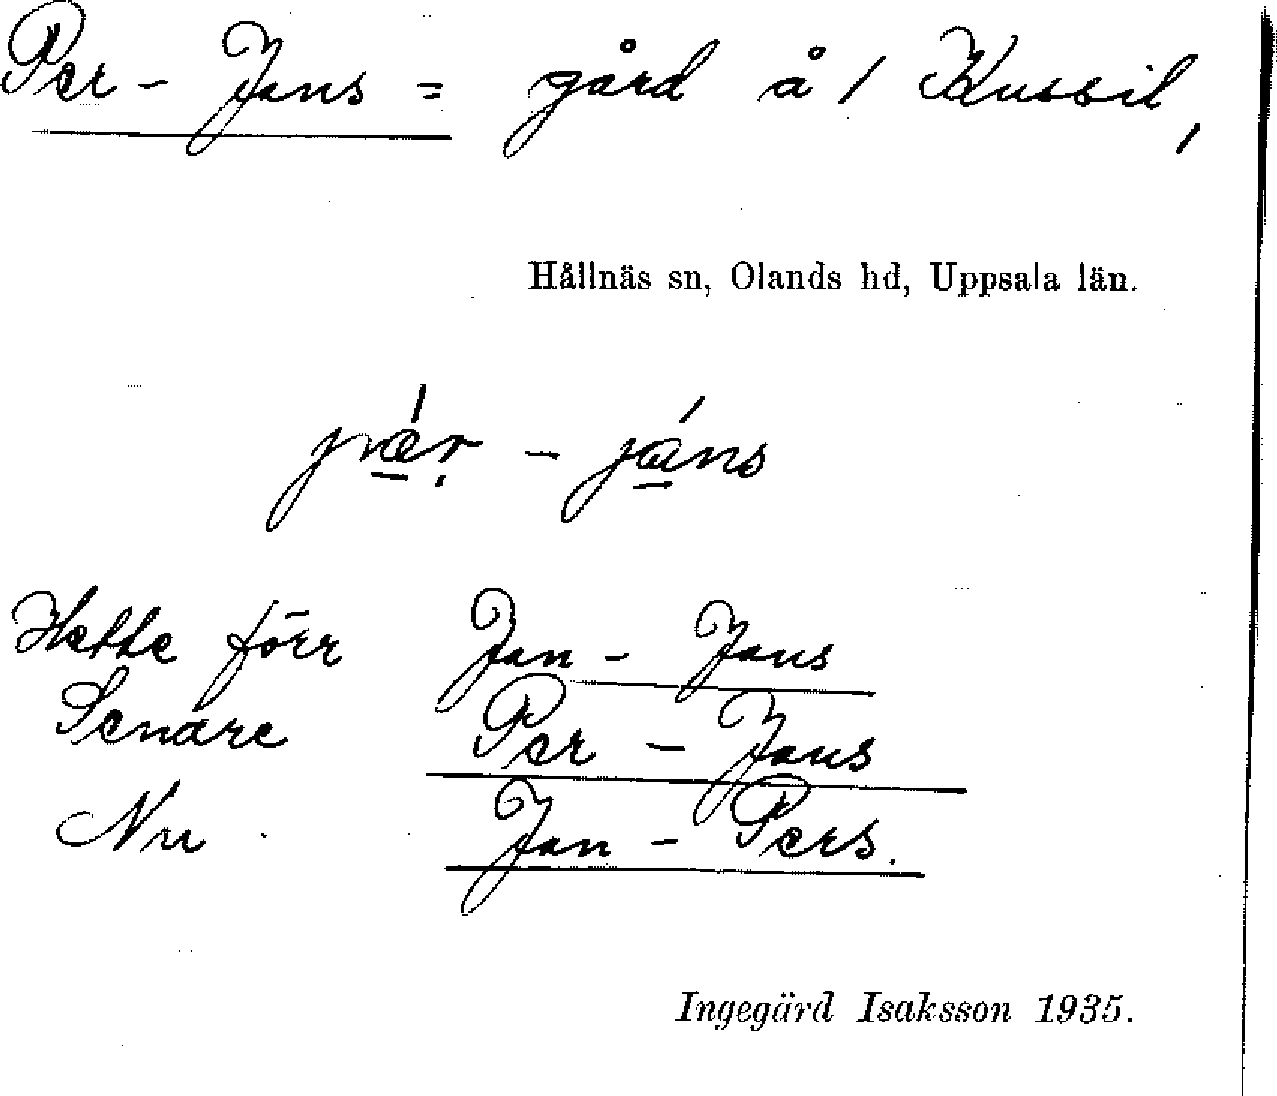 Per - Jans = gård å 1 Kussil,
Hållnäs sn, Olands hd, Uppsala län.
pǽr - jáns
Hette förr Jan - Jans
Senare Per - Jans
Nu Jan - Pers.
Ingegärd Isaksson 1935.